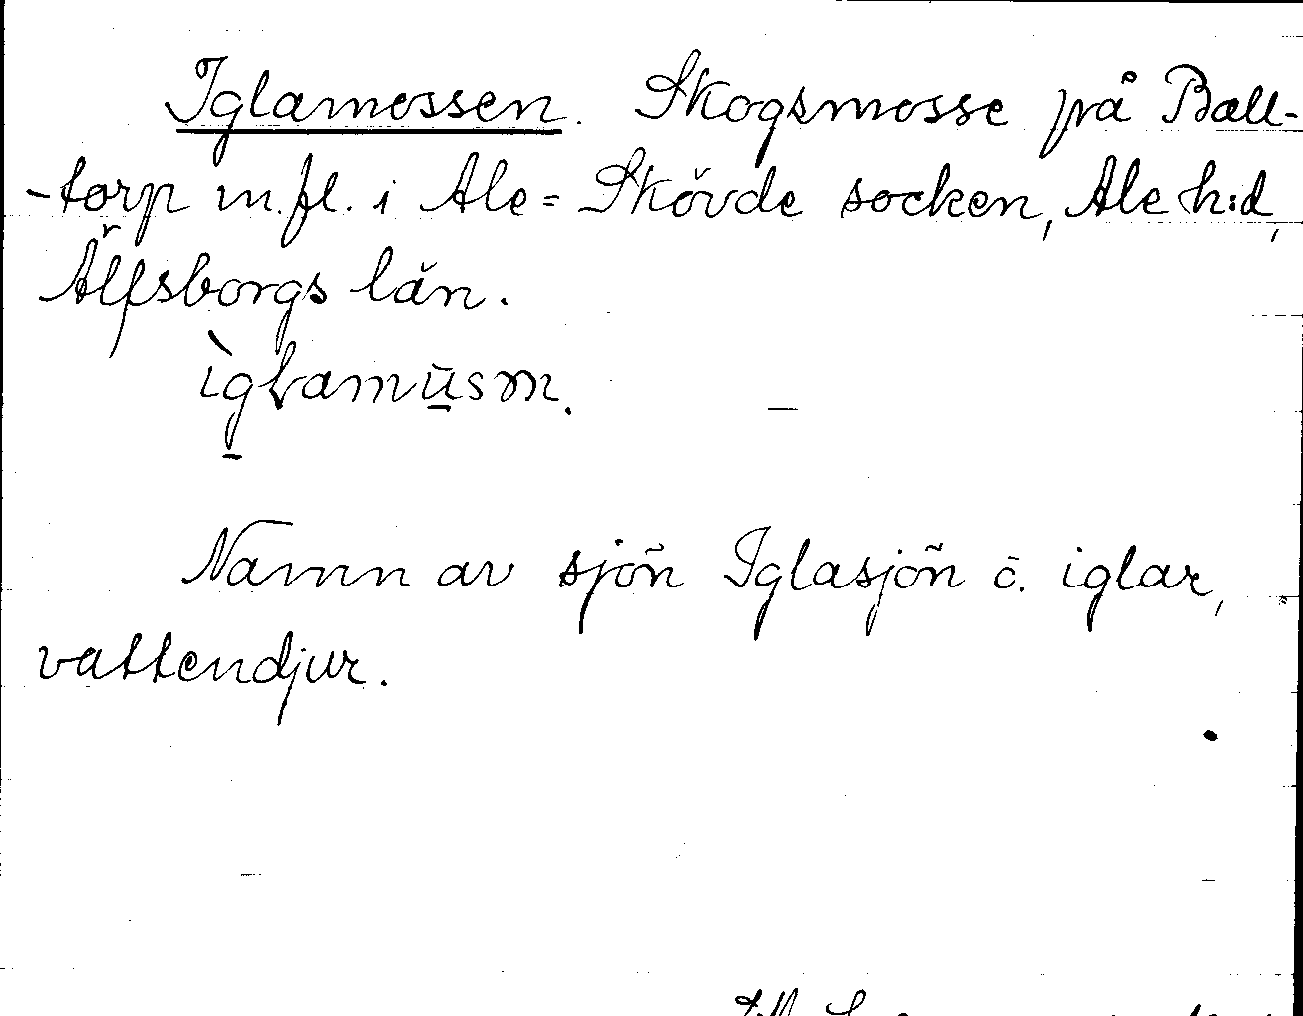 Iglamossen. Skogsmosse på Ball-
-torp m.fl. i Ale=Skövde socken, Ale h:d,
Älfsborgs län.
Namn av sjön Iglasjön o. iglar,
vattendjur.